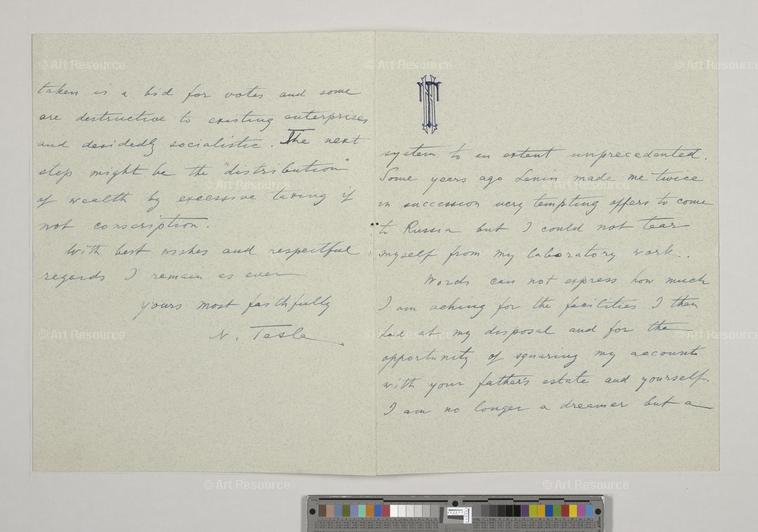 taken is a bid for votes and some
are destructive to existing enterprises
and decidedly socialistic. The next
step might be the "distribution"
of wealth by excessive taxing if
not conscription.
With best wishes and respectful
regards I remain as ever
yours most faithfully
N. Tesla
system to an extent unprecedented.
Some years ago Lenin made me twice
in succession very tempting offers to come
to Russia but I could not tear
myself from my laboratory work.
Words can not express how much
I am aching for the facilities I then
had at my disposal and for the
opportunity of squaring my account
with your father's estate and yourself.
I am no longer a dreamer but a
© Art Resource
© Art Resource
© Art Resource
© Art Resource
© Art Resource
© Art Resource
© Art Resource
© Art Resource
© Art Resource